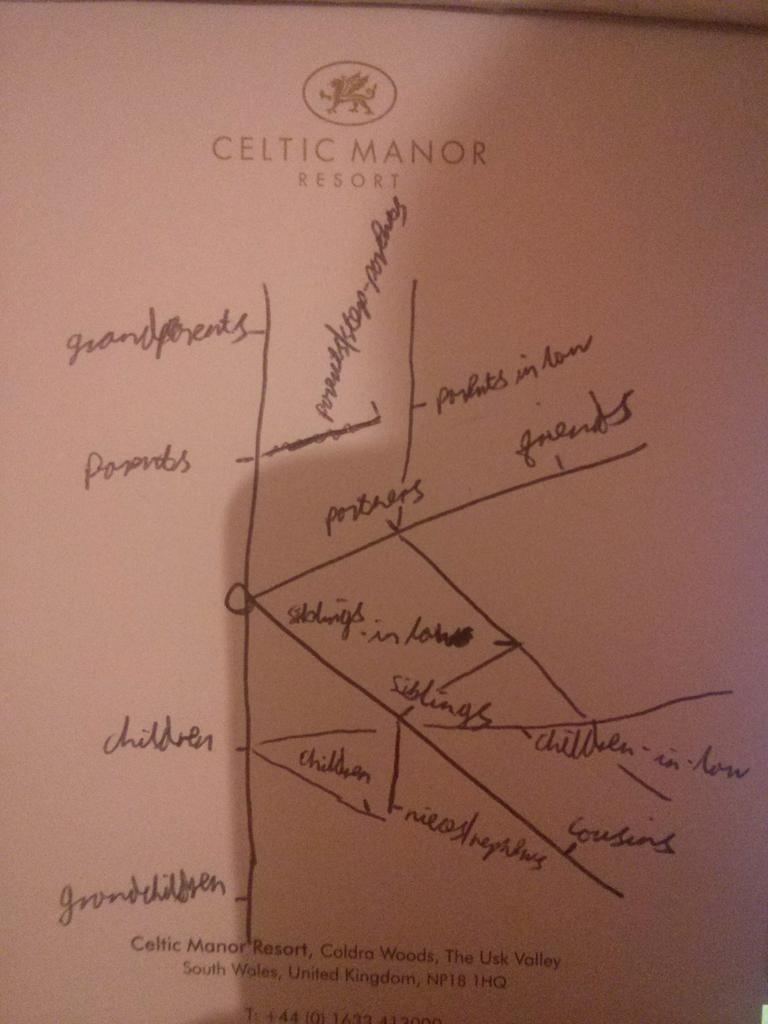 CELTIC MANOR
RESORT
grandparents
parents/step-parents
parents in law
friends
Parents
partners
siblings-in law
siblings
children
children-in-law
children
nieces/nephews
cousins
grandchildren
Celtic Manor Resort, Coldra Woods, The Usk Valley
South Wales, United Kingdom, NP18 1HQ
T: +44 (0) 1633 413000